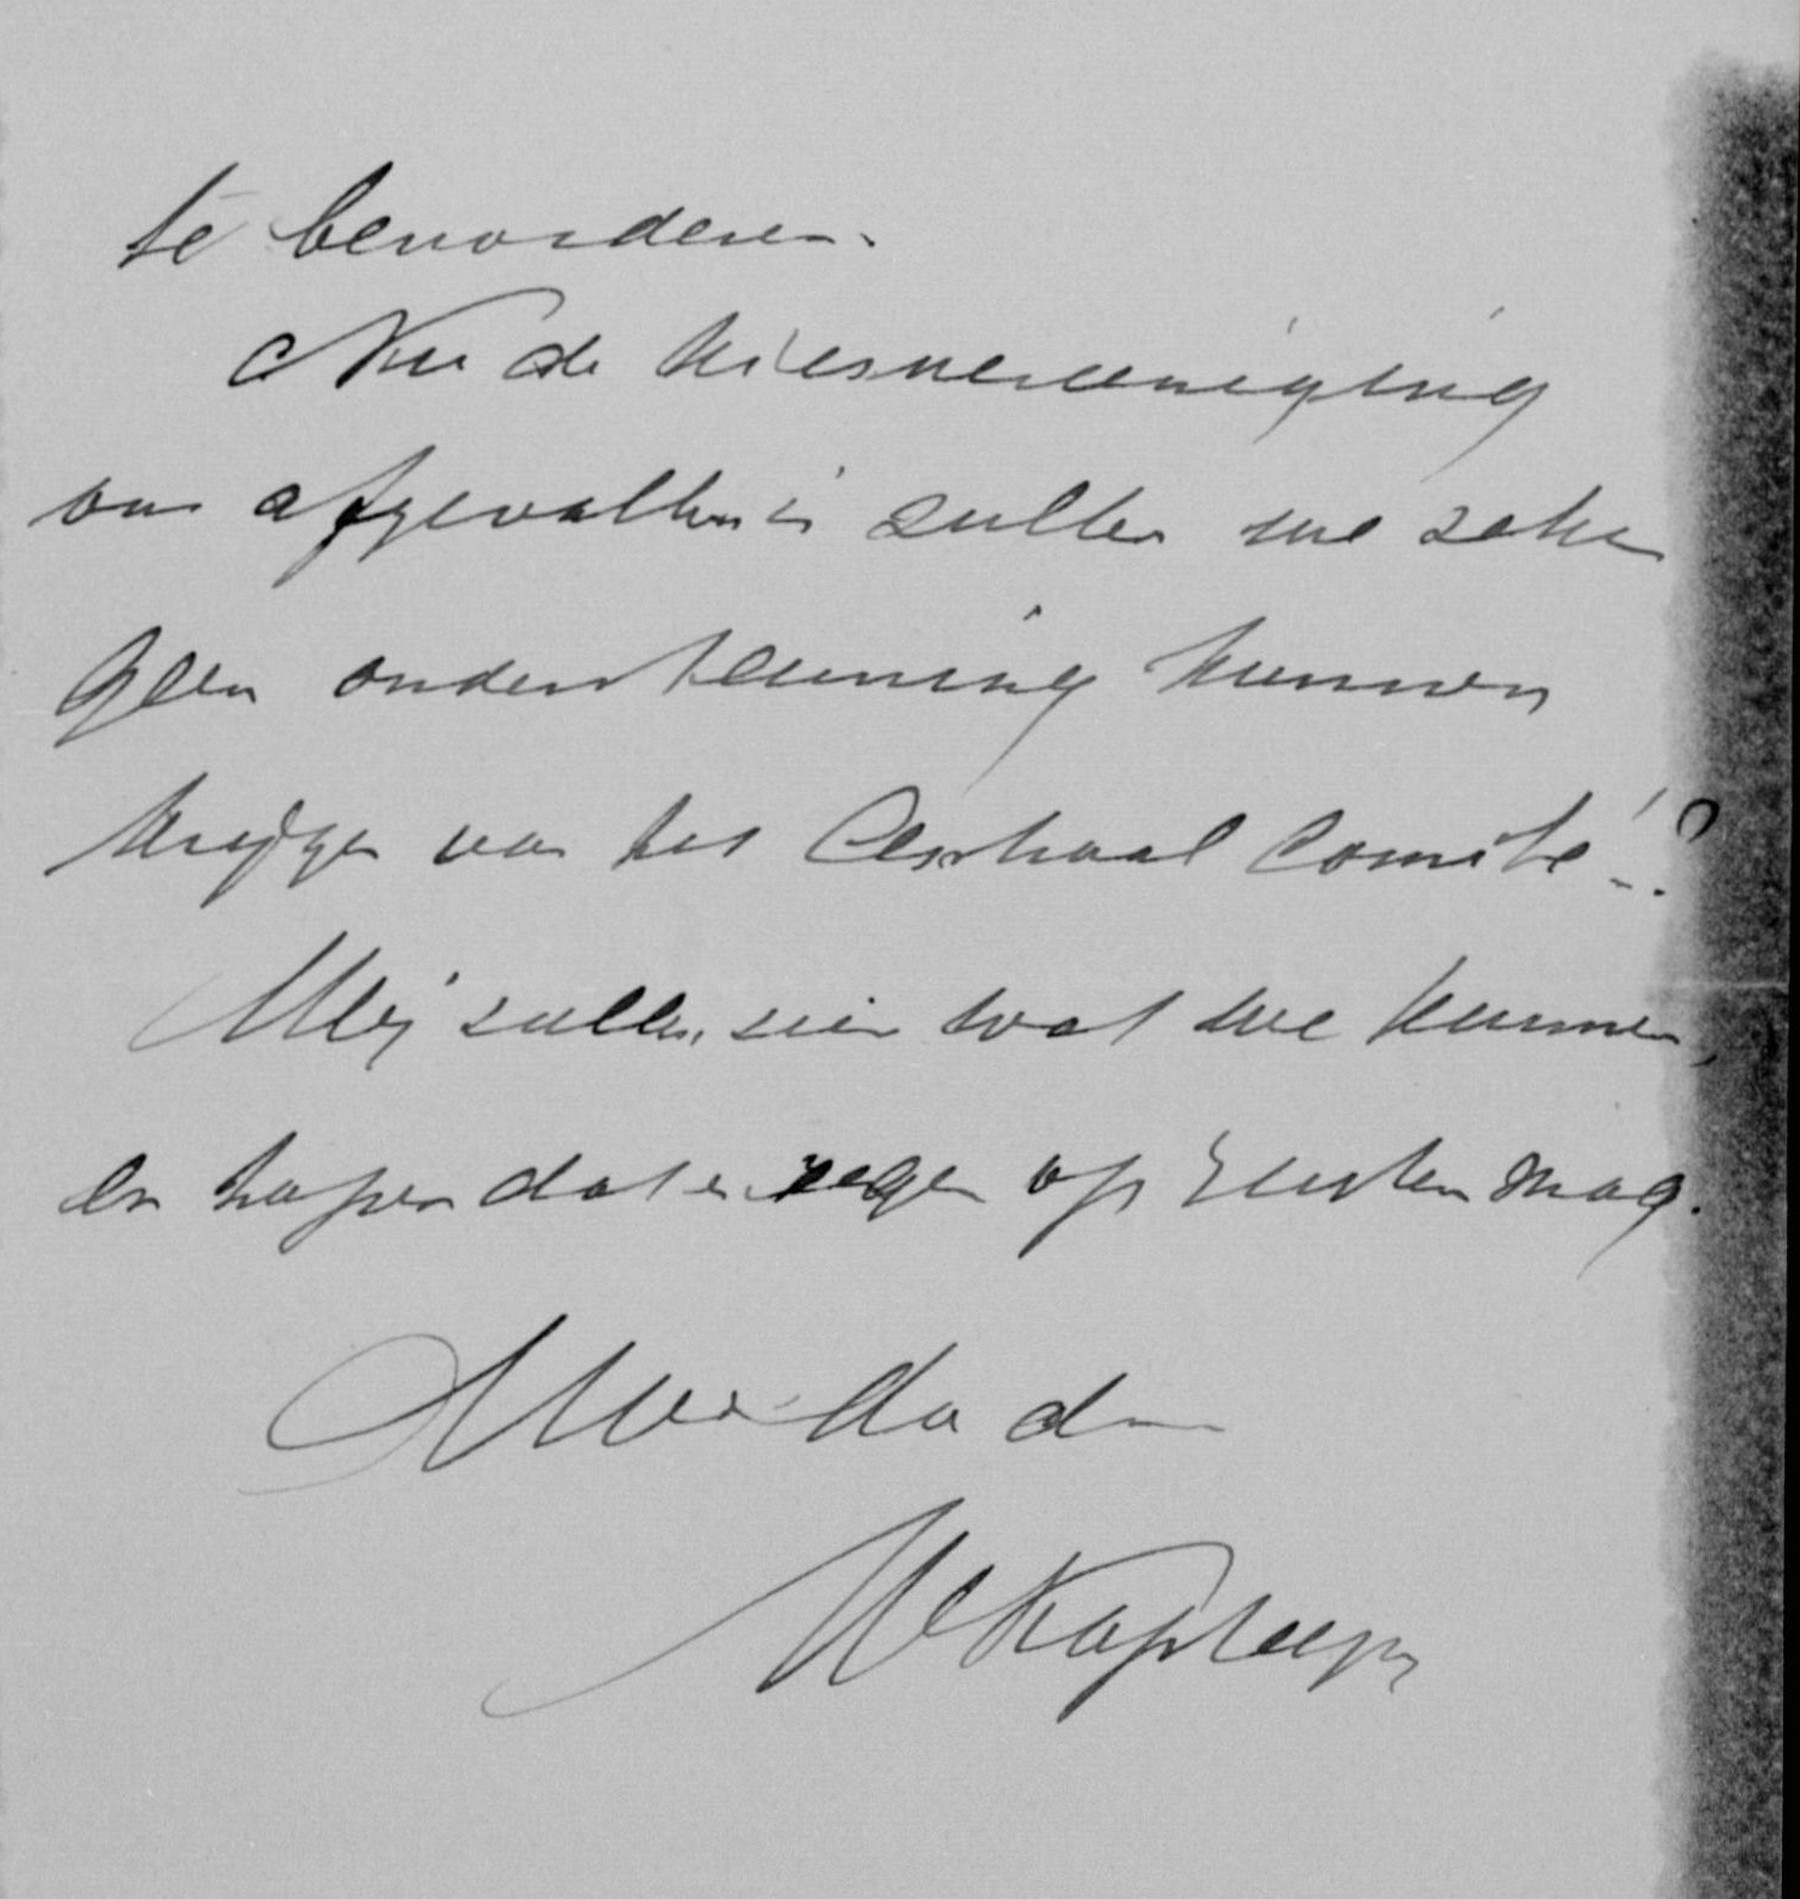 te bevorderen.
Nu de kiesvereeniging
ons afgevallen is zullen we zeker
geen ondersteuning kunnen
krijgen van het Centraal Comité?
Wij zullen zien wat we kunnen,
en hopen dat er zegen op rusten mag.
WKapteyn